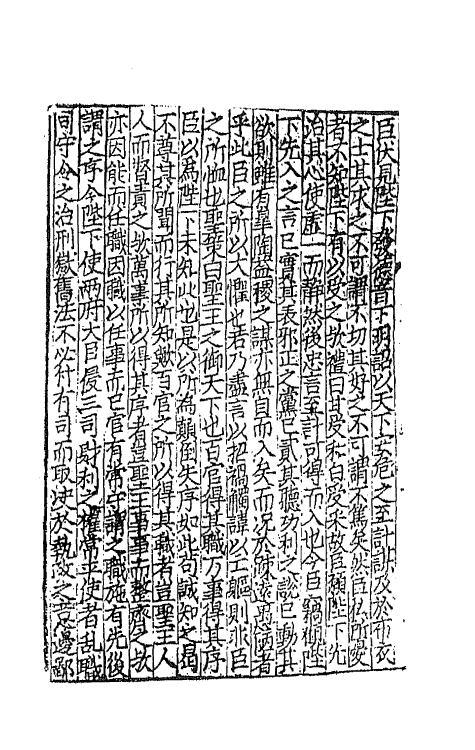 臣伏見陛下發德音下明詔以天下安危之至計訪及於布衣
之士其求之不可謂不切其好之不可謂不篤矣然臣私所憂
者不知陛下有以受之歟禮曰甘受和白受采故臣願陛下先
治其心使虛一而静然後忠言至計可得而入也今臣竊恐陛
下先入之言已實其衷邪正之黨已貳其聽功利之説已動其
欲則雖有臯陶益稷之謀亦無自而入矣而况於踈逺愚陋者
乎此臣之所以大懼也若乃盡言以招禍觸諱以亡軀則非臣
之所恤也聖策曰聖王之御天下也百官得其職万事得其序
臣以為陛下未知此也是以所為顛倒失序如此苟誠知之曷
不尊其所聞而行其所知歟百官之所以得其職者豈聖王人
人而督責之歟萬事所以得其序者豈聖王事事而整齊之歟
亦因能而任職因職以任事而已官有常守謂之職施有先後
謂之序今陛下使两府大臣侵三司財利之權常平使者乱職
司守令之治刑獄舊法不以付有司而取决於執政之意邊鄙